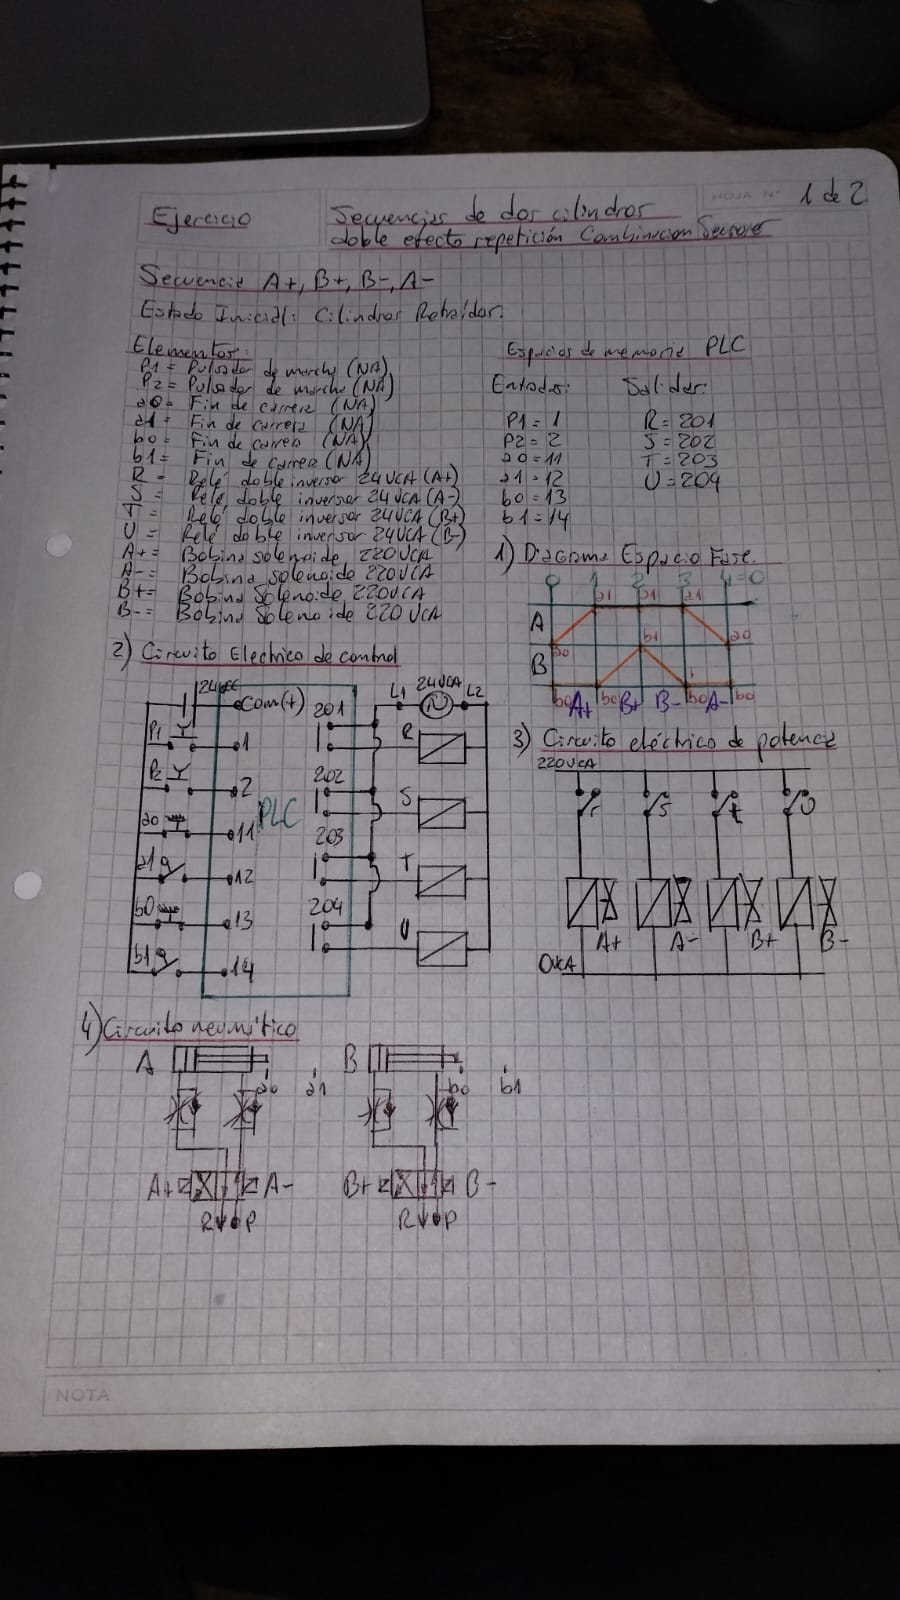 HOJA N° 1 de 2
Ejercicio
Secuencias de dos cilindros
doble efecto repetición Combinacion Sensores
Secuencia A+, B+, B-, A-
Estado Inicial: Cilindros Retraídos.
Elementos:
P1= Pulsador de marcha (NA)
P2= Pulsador de marcha (NA)
a0= Fin de carrera (NA)
a1= Fin de carrera (NA)
b0= Fin de carrera (NA)
b1= Fin de carrera (NA)
R= Relé doble inversor 24VCA (A+)
S= Relé doble inversor 24VCA (A-)
T= Relé doble inversor 24VCA (B+)
U= Relé doble inversor 24VCA (B-)
A+= Bobina solenoide 220VCA
A-= Bobina solenoide 220VCA
B+= Bobina solenoide 220VCA
B-= Bobina solenoide 220VCA
Espacios de memoria PLC
Entradas: Salidas:
P1=1 R=201
P2=2 S=202
a0=11 T=203
a1=12 U=204
b0=13
b1=14
1) Diagrama Espacio Fase.
0 1 2 3 4=0
a1 a1 a1
A
a0 b1 a0
B
b0 b0 b0 b0
A+ B+ B- A-
2) Circuito Electrico de control
24VCC Com(+) 201 L1 24VCA L2
P1 1 R
P2 2 202 S
a0 11 PLC
203
a1 12 T
b0 13 204 U
b1 14
3) Circuito eléctrico de potencia
220VCA
r s t U
A+ A- B+ B-
0VCA
4) Circuito neumático
A a0 a1 B b0 b1
A+ A- B+ B-
R P R P
NOTA